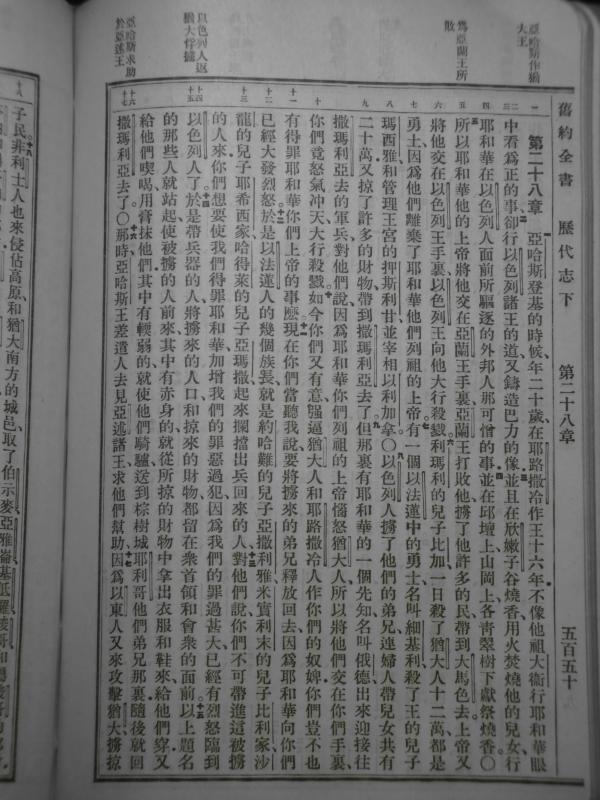 舊約全書 歷代志下 第二十八章 五百五十
亞哈斯作猶大王
爲亞蘭王所敗
以色列人返猶大俘擄
亞哈斯求助於亞述王
第二十八章 亞哈斯登基的時候年二十歲在耶路撒冷作王十六年不像他祖大衞行耶和華眼
中看爲正的事卻行以色列諸王的道又鑄造巴力的像並且在欣嫩子谷燒香用火焚燒他的兒女行
耶和華在以色列人面前所驅逐的外邦人那可憎的事並在邱壇上山岡上各靑翠樹下獻祭燒香〇
所以耶和華他的上帝將他交在亞蘭王手裏亞蘭王打敗他擄了他許多的民帶到大馬色去上帝又
將他交在以色列王手裏以色列王向他大行殺戮利瑪利的兒子比加一日殺了猶大人十二萬都是
勇士因爲他們離棄了耶和華他們列祖的上帝有一個以法蓮中的勇士名叫細基利殺了王的兒子
瑪西雅和管理王宮的押斯利甘並宰相以利加拿〇以色列人擄了他們的弟兄連婦人帶兒女共有
二十萬又掠了許多的財物帶到撒瑪利亞去了但那裏有耶和華的一個先知名叫俄德出來迎接往
撒瑪利亞去的軍兵對他們說因爲耶和華你們列祖的上帝惱怒猶大人所以將他們交在你們手裏
你們竟怒氣冲天大行殺戮如今你們又有意强逼猶大人和耶路撒冷人作你們的奴婢你們豈不也
有得罪耶和華你們上帝的事麽現在你們當聽我說要將擄來的弟兄釋放回去因爲耶和華向你們
已經大發烈怒於是以法蓮人的幾個族長就是約哈難的兒子亞撒利雅米實利末的兒子比利家沙
龍的兒子耶希西家哈得萊的兒子亞瑪撒起來攔擋出兵回來的人對他們說你們不可帶進這被擄
的人來你們想要使我們得罪耶和華加增我們的罪惡過犯因爲我們的罪過甚大已經有烈怒臨到
以色列人了於是帶兵器的人將擄來的人口和掠來的財物都留在衆首領和會衆的面前以上題名
的那些人就站起使被擄的人前來其中有赤身的就從所掠的財物中拿出衣服和鞋來給他們穿又
給他們喫喝用膏抹他們其中有輭弱的就使他們騎驢送到棕樹城耶利哥他們弟兄那裏隨後就回
撒瑪利亞去了〇那時亞哈斯王差遣人去見亞述諸王求他們幫助因爲以東人又來攻擊猶大擄掠
子民非利士人也來侵佔高原和猶大南方的城邑取了伯示麥亞雅崙基低羅